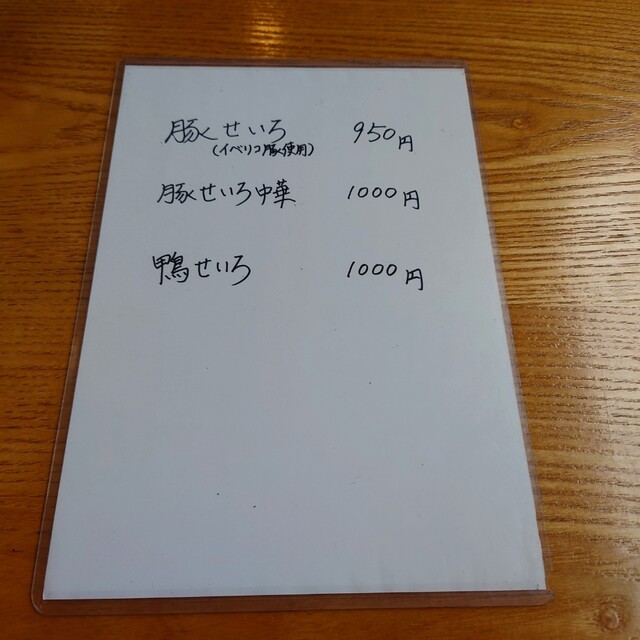 豚せいろ 950円
(イベリコ豚使用)
豚せいろ中華 1000円
鴨せいろ 1000円